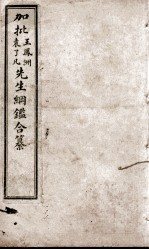 加批王鳳洲袁了凡先生綱鑑合纂